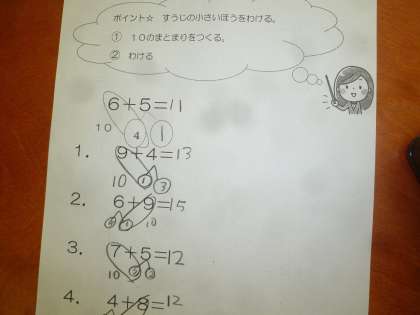 ポイント☆ すうじの小さいほうをわける。
① 10のまとまりをつくる。
② わける
6+5=11
10 4 1
1. 9+4=13
10 1 3
2. 6+9=15
5 1 10
3. 7+5=12
10 3 2
4. 4+8=12